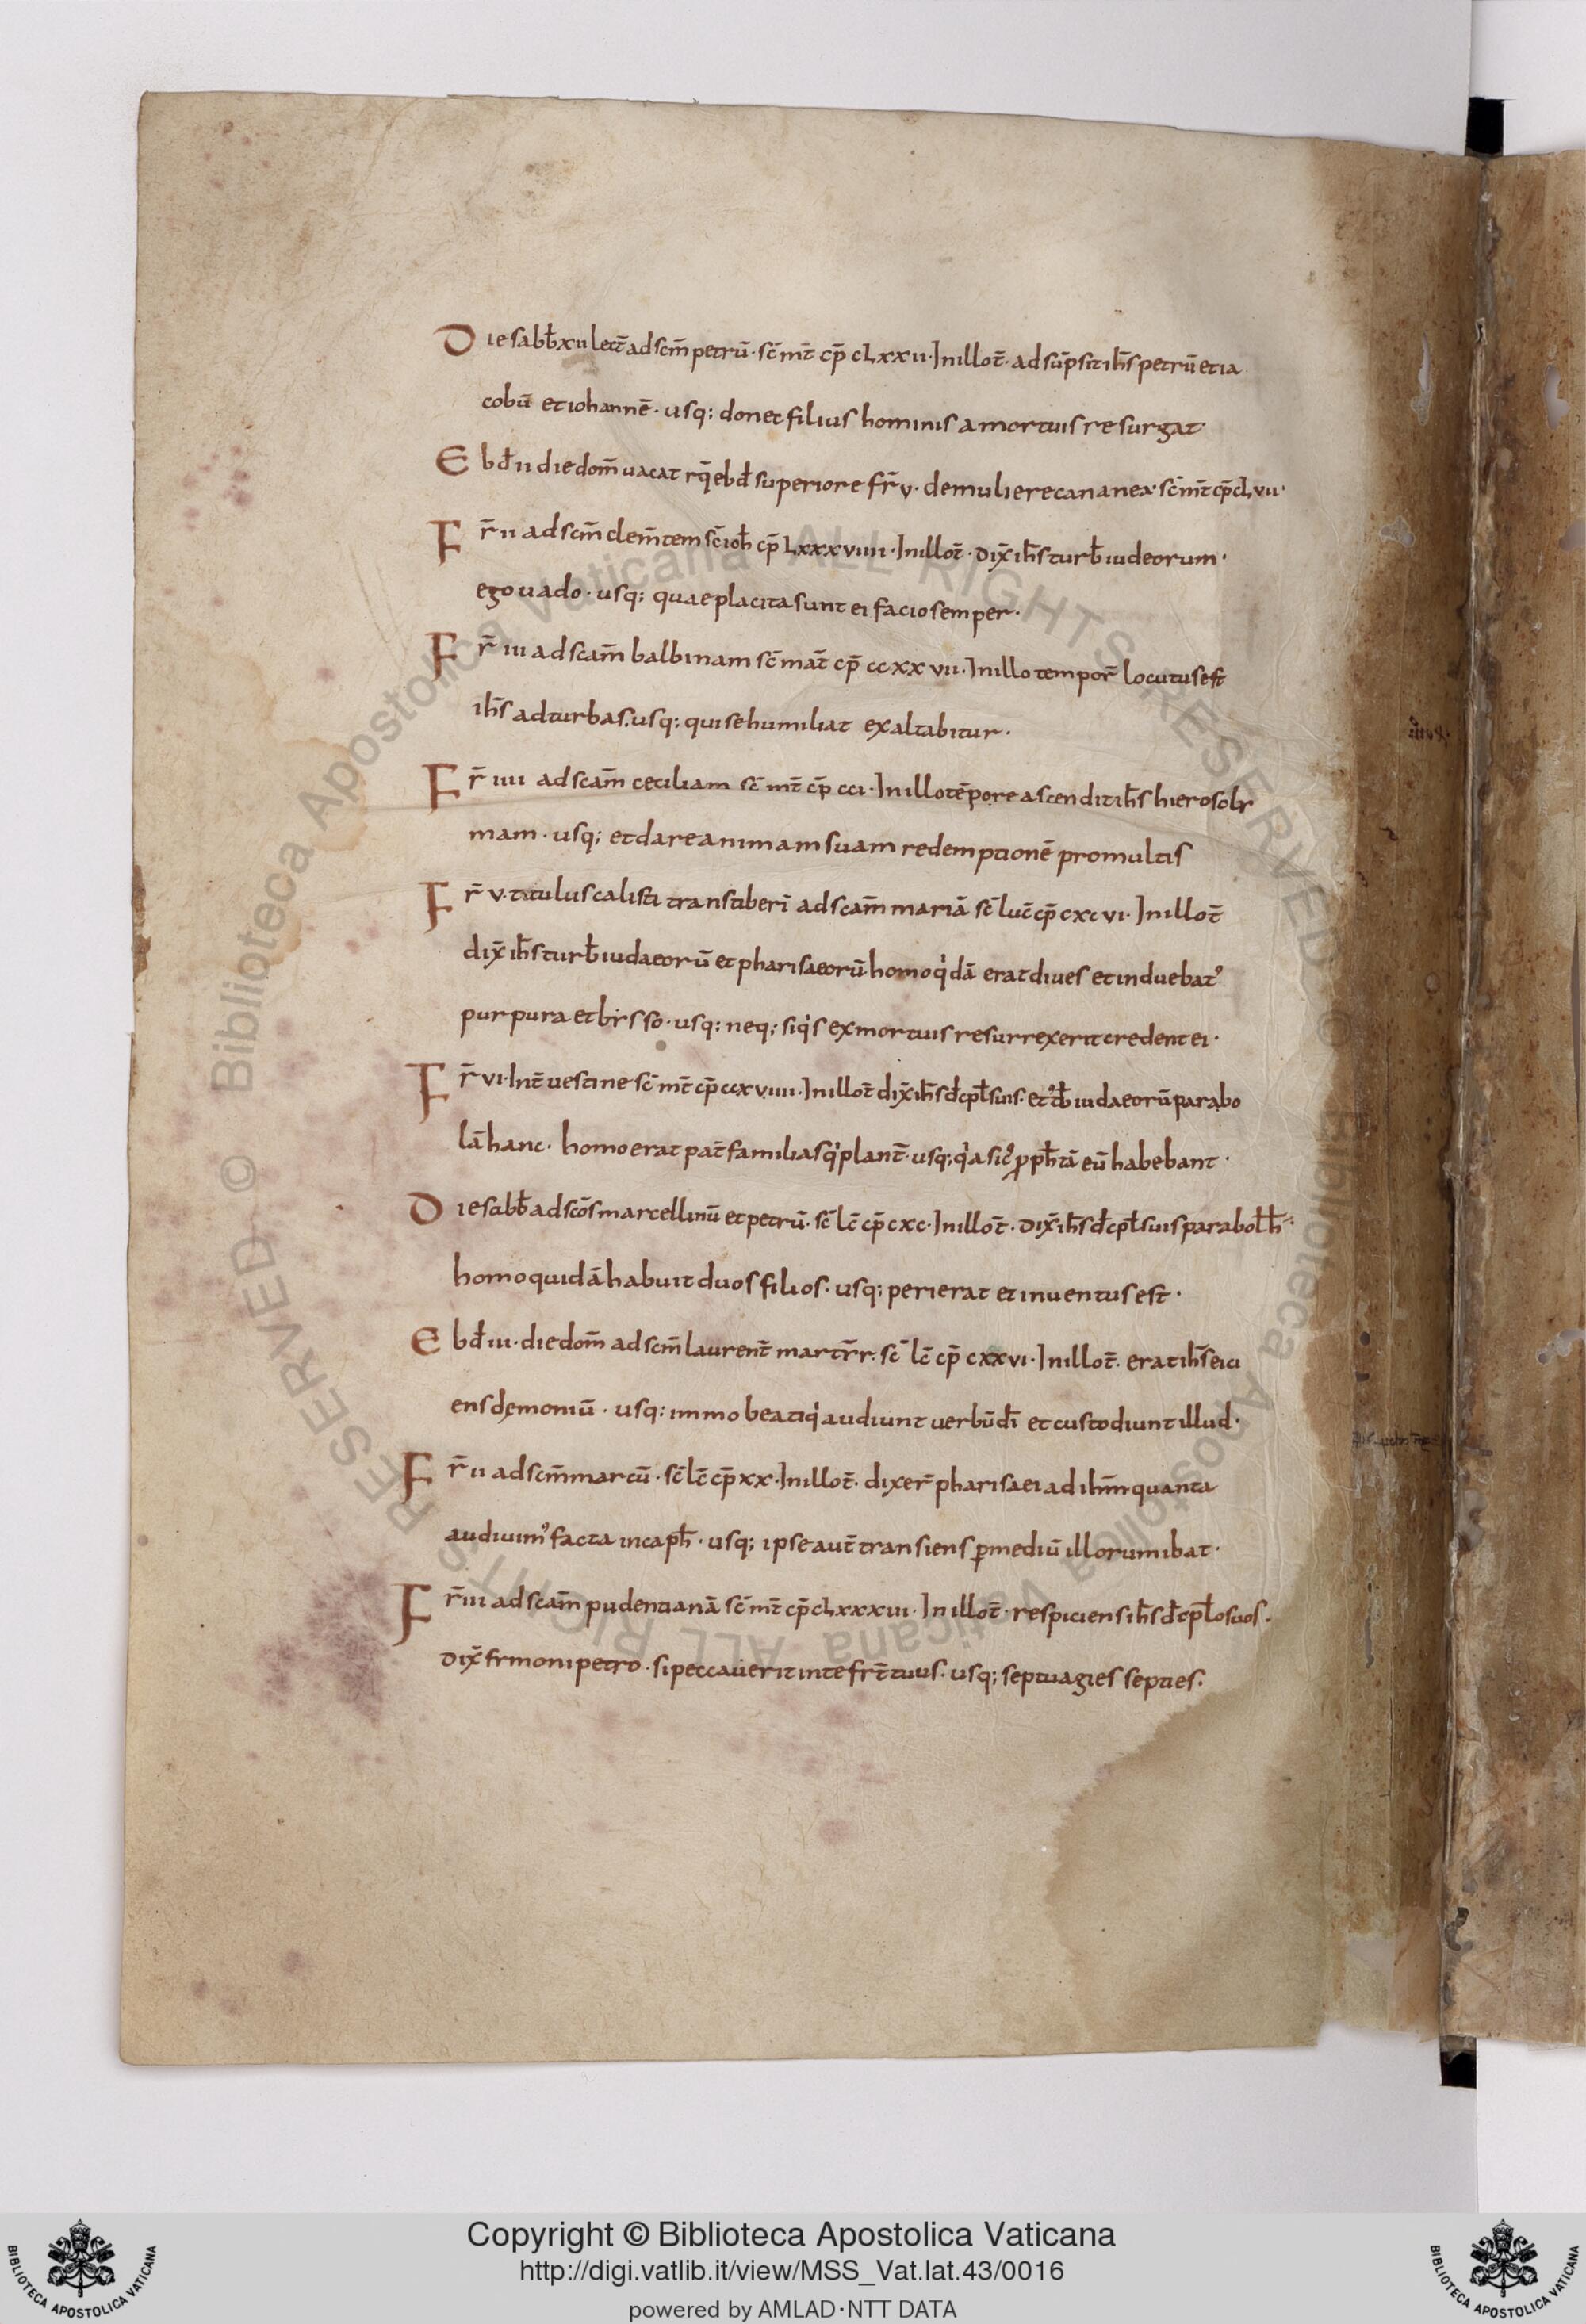 Die sabb̄ xii lect̄ ad scm̄ petrū· sc̄ mt̄ cp̄ clxxii· In illo t̄· adsūpsit ih̄s petrū et ia
cobū et iohannē· usq; donec filius hominis a mortuis resurgat·
Ebd̄ ii die dom̄ uacat rq̄ ebd̄ superiore fr̄ v· de muliere cananea· sc̄ mt̄ cp̄ clvii·
Fr̄ ii ad scm̄ clem̄tem sc̄ ioh̄ cp̄ lxxxviiii· In illo t̄· dix̄ ih̄s turb̄ iudeorum·
ego uado· usq; quae placita sunt ei facio semper·
Fr̄ iii ad scam̄ balbinam sc̄ mat̄ cp̄ ccxxvii· In illo tempor̄ locutus est
ih̄s ad turbas· usq; qui se humiliat exaltabitur·
Fr̄ iiii ad scam̄ ceciliam sc̄ mt̄ cp̄ cci· In illo tēpore ascendit ih̄s hierosoly
mam· usq; et dare animam suam redemptionē pro multis
Fr̄ v· titulus calisti transtiberī ad scam̄ mariā sc̄ luc̄ cp̄ cxcvi· In illo t̄
dix̄ ih̄s turb̄ iudaeorū et pharisaeorū homo qidā erat diues et induebat᾽
purpura et bysso· usq; neq; siqis ex mortuis resurrexerit credent ei·
Fr̄ vi· Int̄ uestine sc̄ mt̄ cp̄ ccxviiii· In illo t̄ dix̄ ih̄s dc̄pl̄ suis· et t᾽b̄ iudaeorū parabo
lā hanc· homo erat pat̄familias qi plant̄· usq; qia sic᾽ pph̄tā eū habebant·
Die sabb̄ ad scōs marcellinū et petrū· sc̄ lc̄ cp̄ cxc· In illo t̄· dix̄ ih̄s dc̄pl̄ suis parabol̄ h̄·
homo quidā habuit duos filios· usq; perierat et inuentus est·
Ebd̄ iii· die dom̄ ad scm̄ laurent̄ martyr̄· sc̄ lc̄ cp̄ cxxvi· In illo t̄· erat ih̄s eici
ens dęmoniū· usq; immo beati qi audiunt uerbū dī et custodiunt illud·
Fr̄ ii ad scm̄ marcū· sc̄ lc̄ cp̄ xx· In illo t̄· dixer̄ pharisaei ad ihm̄ quanta
audiuim᾽ facta in caph̄· usq; ipse aut̄ transiens p̱ mediū illorum ibat·
Fr̄ iii ad scam̄ pudentianā sc̄ mt̄ cp̄ clxxxiii· In illo t̄· respiciens ih̄s dc̄pl̄os suos·
dix̄ symoni petro· si peccauerit in te frt̄ tuus· usq; septuagies septies·
Copyright © Biblioteca Apostolica Vaticana
http://digi.vatlib.it/view/MSS_Vat.lat.43/0016
powered by AMLAD·NTT DATA